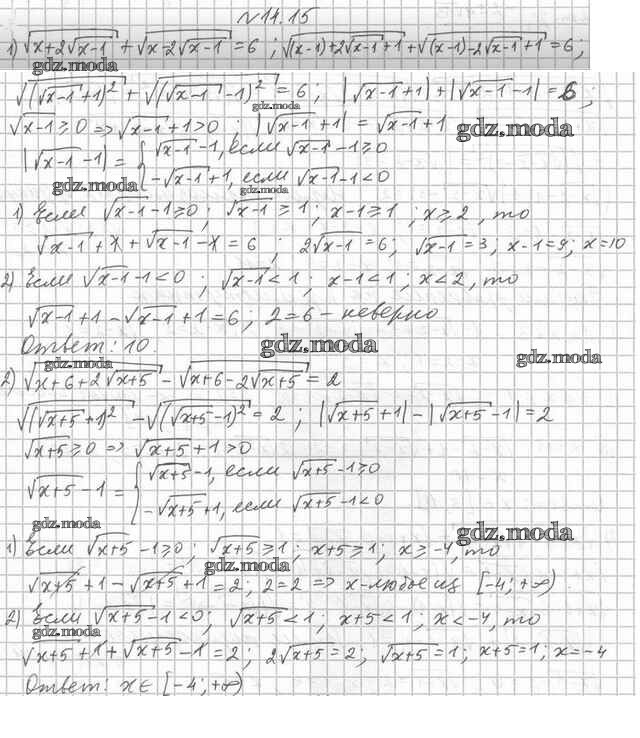 №14.15
1) √(x+2√(x-1)) + √(x-2√(x-1)) = 6 ; √((x-1)+2√(x-1)+1) + √((x-1)-2√(x-1)+1) = 6 ;
gdz.moda
√((√(x-1)+1)²) + √((√(x-1)-1)²) = 6 ; |√(x-1)+1| + |√(x-1)-1| = 6 ;
gdz.moda
√(x-1) ≥ 0 => √(x-1)+1 > 0 ; |√(x-1)+1| = √(x-1)+1
gdz.moda
|√(x-1)-1| = { √(x-1)-1, если √(x-1)-1 ≥ 0
-√(x-1)+1, если √(x-1)-1 < 0
gdz.moda gdz.moda
1) Если √(x-1)-1 ≥ 0 ; √(x-1) ≥ 1 ; x-1 ≥ 1 ; x ≥ 2, то
√(x-1)+1+√(x-1)-1 = 6 ; 2√(x-1) = 6 ; √(x-1) = 3 ; x-1 = 9 ; x = 10
2) Если √(x-1)-1 < 0 ; √(x-1) < 1 ; x-1 < 1 ; x < 2, то
√(x-1)+1-√(x-1)+1 = 6 ; 2 = 6 - неверно
Ответ: 10.
gdz.moda
gdz.moda gdz.moda
2) √(x+6+2√(x+5)) - √(x+6-2√(x+5)) = 2
√((√(x+5)+1)²) - √((√(x+5)-1)²) = 2 ; |√(x+5)+1| - |√(x+5)-1| = 2
√(x+5) ≥ 0 => √(x+5)+1 > 0
√(x+5)-1 = { √(x+5)-1, если √(x+5)-1 ≥ 0
-√(x+5)+1, если √(x+5)-1 < 0
gdz.moda gdz.moda
1) Если √(x+5)-1 ≥ 0 ; √(x+5) ≥ 1 ; x+5 ≥ 1 ; x ≥ -4, то
gdz.moda
√(x+5)+1-√(x+5)+1 = 2 ; 2 = 2 => x-любое из [-4; +∞)
2) Если √(x+5)-1 < 0 ; √(x+5) < 1 ; x+5 < 1 ; x < -4, то
gdz.moda
√(x+5)+1+√(x+5)-1 = 2 ; 2√(x+5) = 2 ; √(x+5) = 1 ; x+5 = 1 ; x = -4
Ответ: x ∈ [-4; +∞)